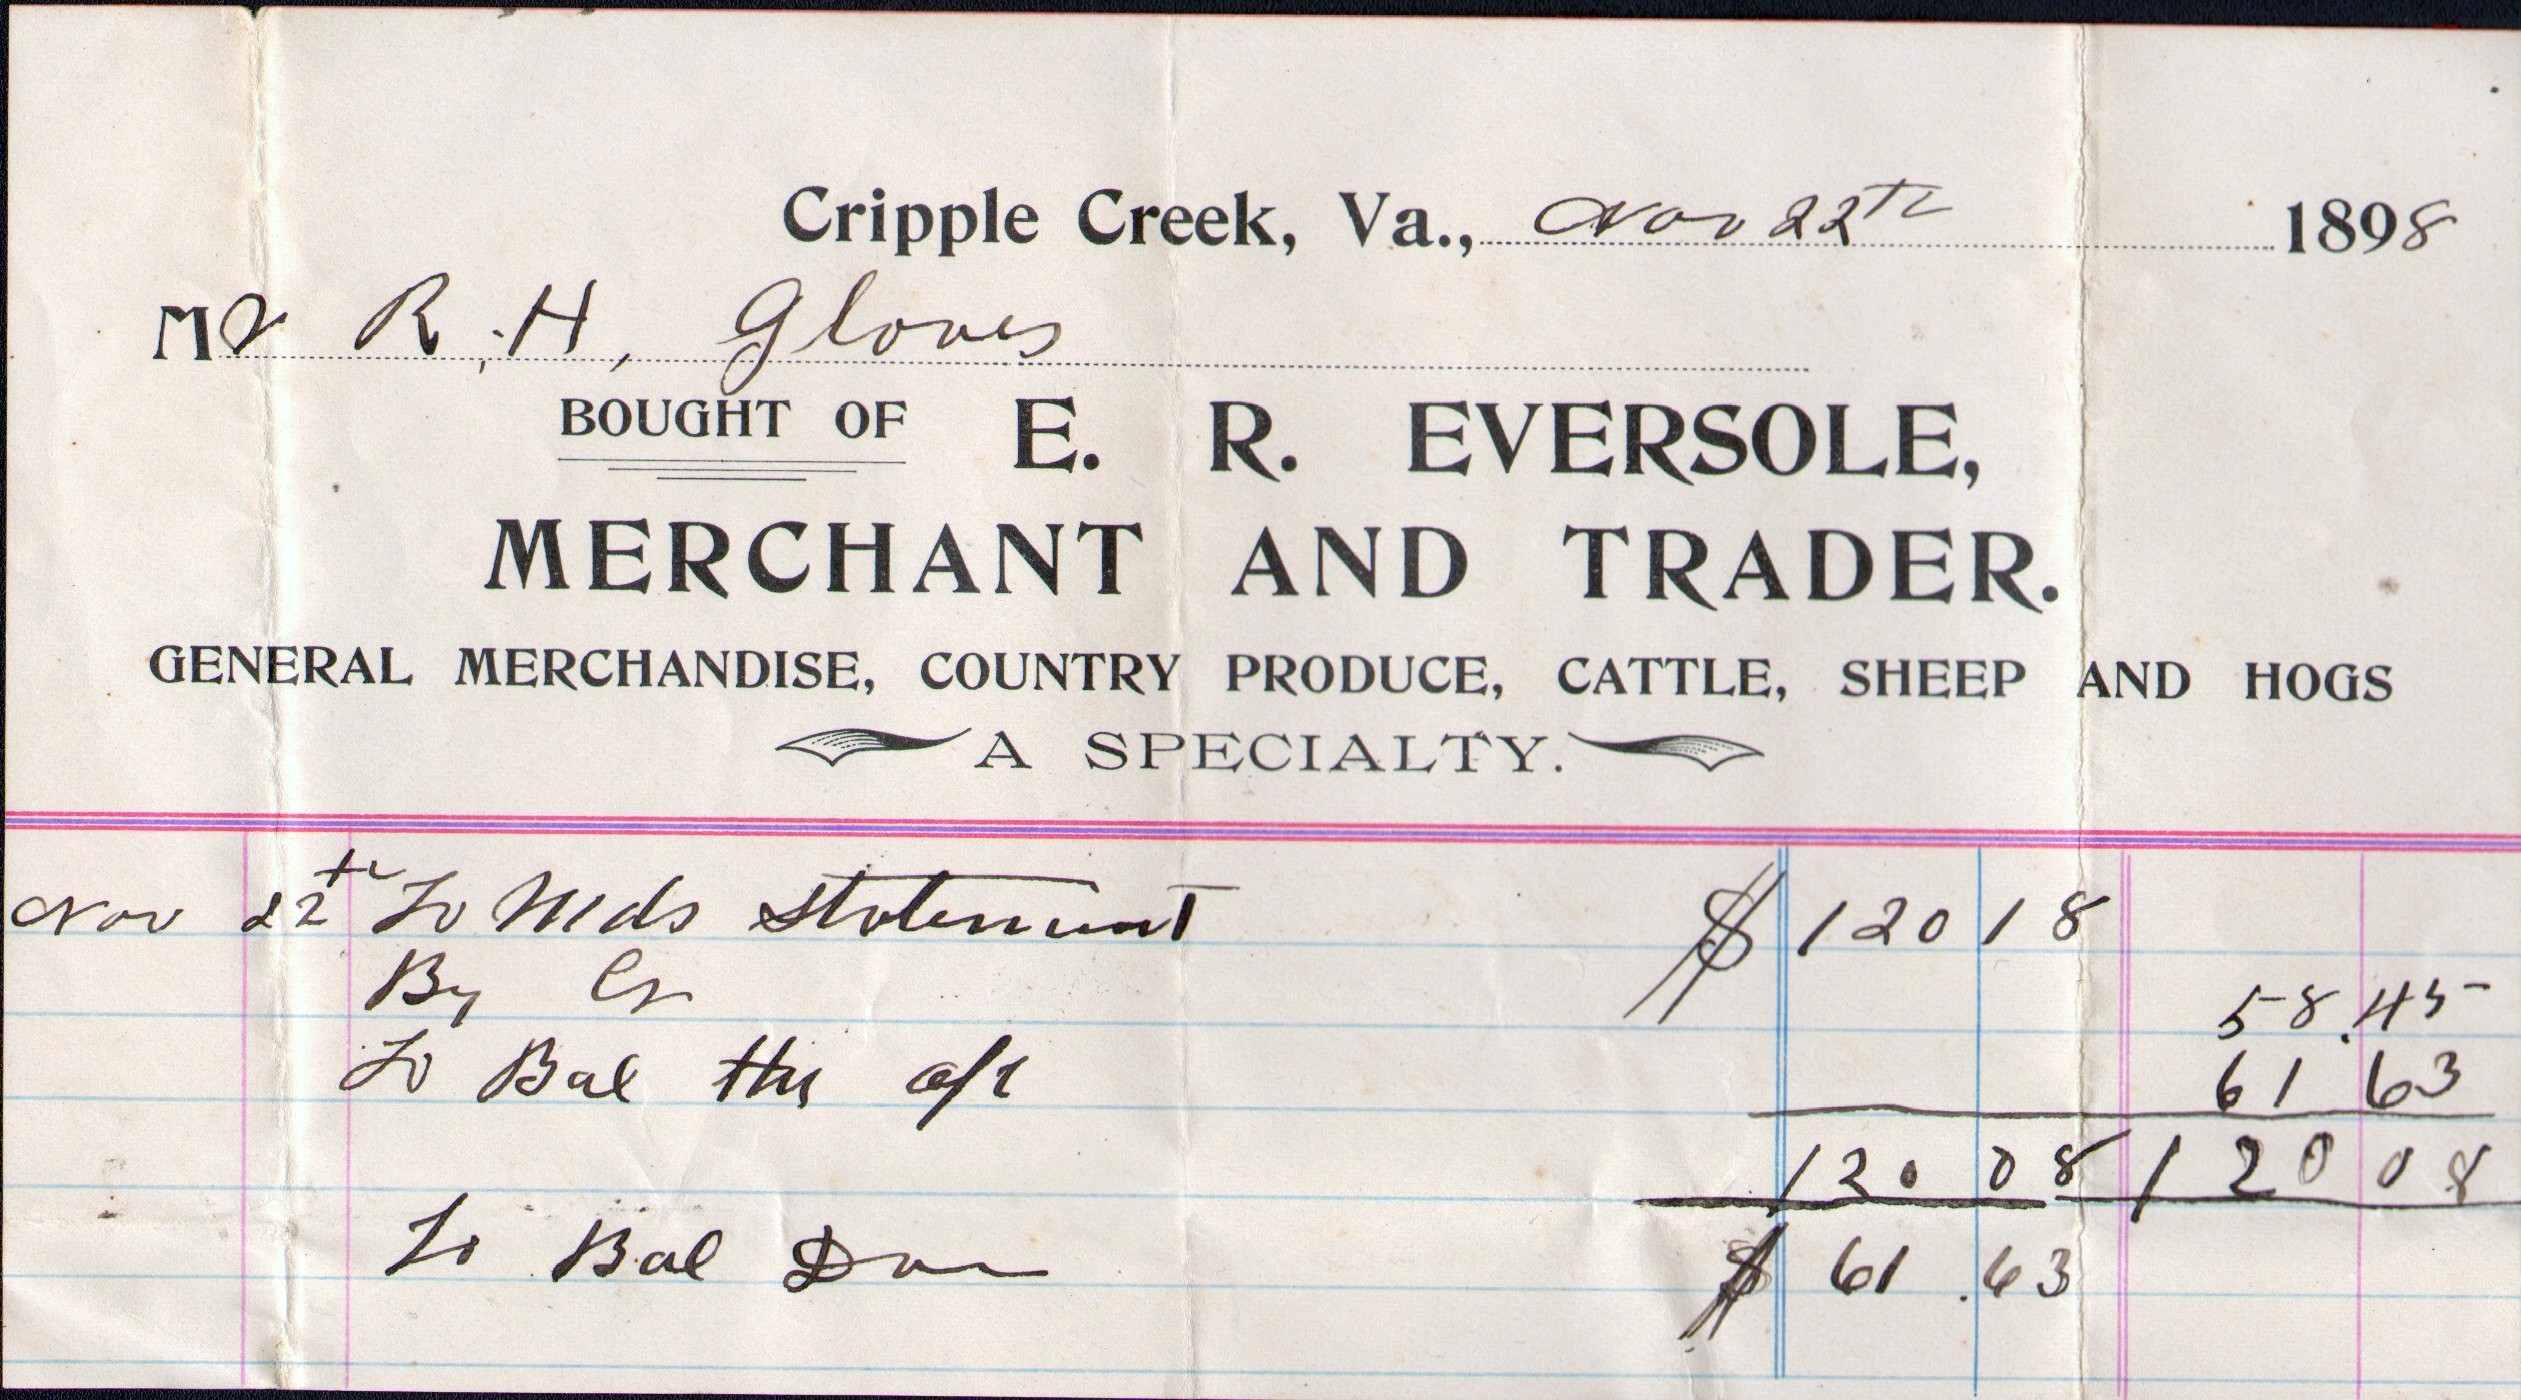 Cripple Creek, Va., Nov 22th 1898
Mr R. H. Gloves
BOUGHT OF E. R. EVERSOLE,
MERCHANT AND TRADER.
GENERAL MERCHANDISE, COUNTRY PRODUCE, CATTLE, SHEEP AND HOGS
A SPECIALTY.
Nov 22th To Mds statement $ 120 18
By Cr 58.45
To Bal this a/c 61 63
120 08 120 08
To Bal Due $ 61.63